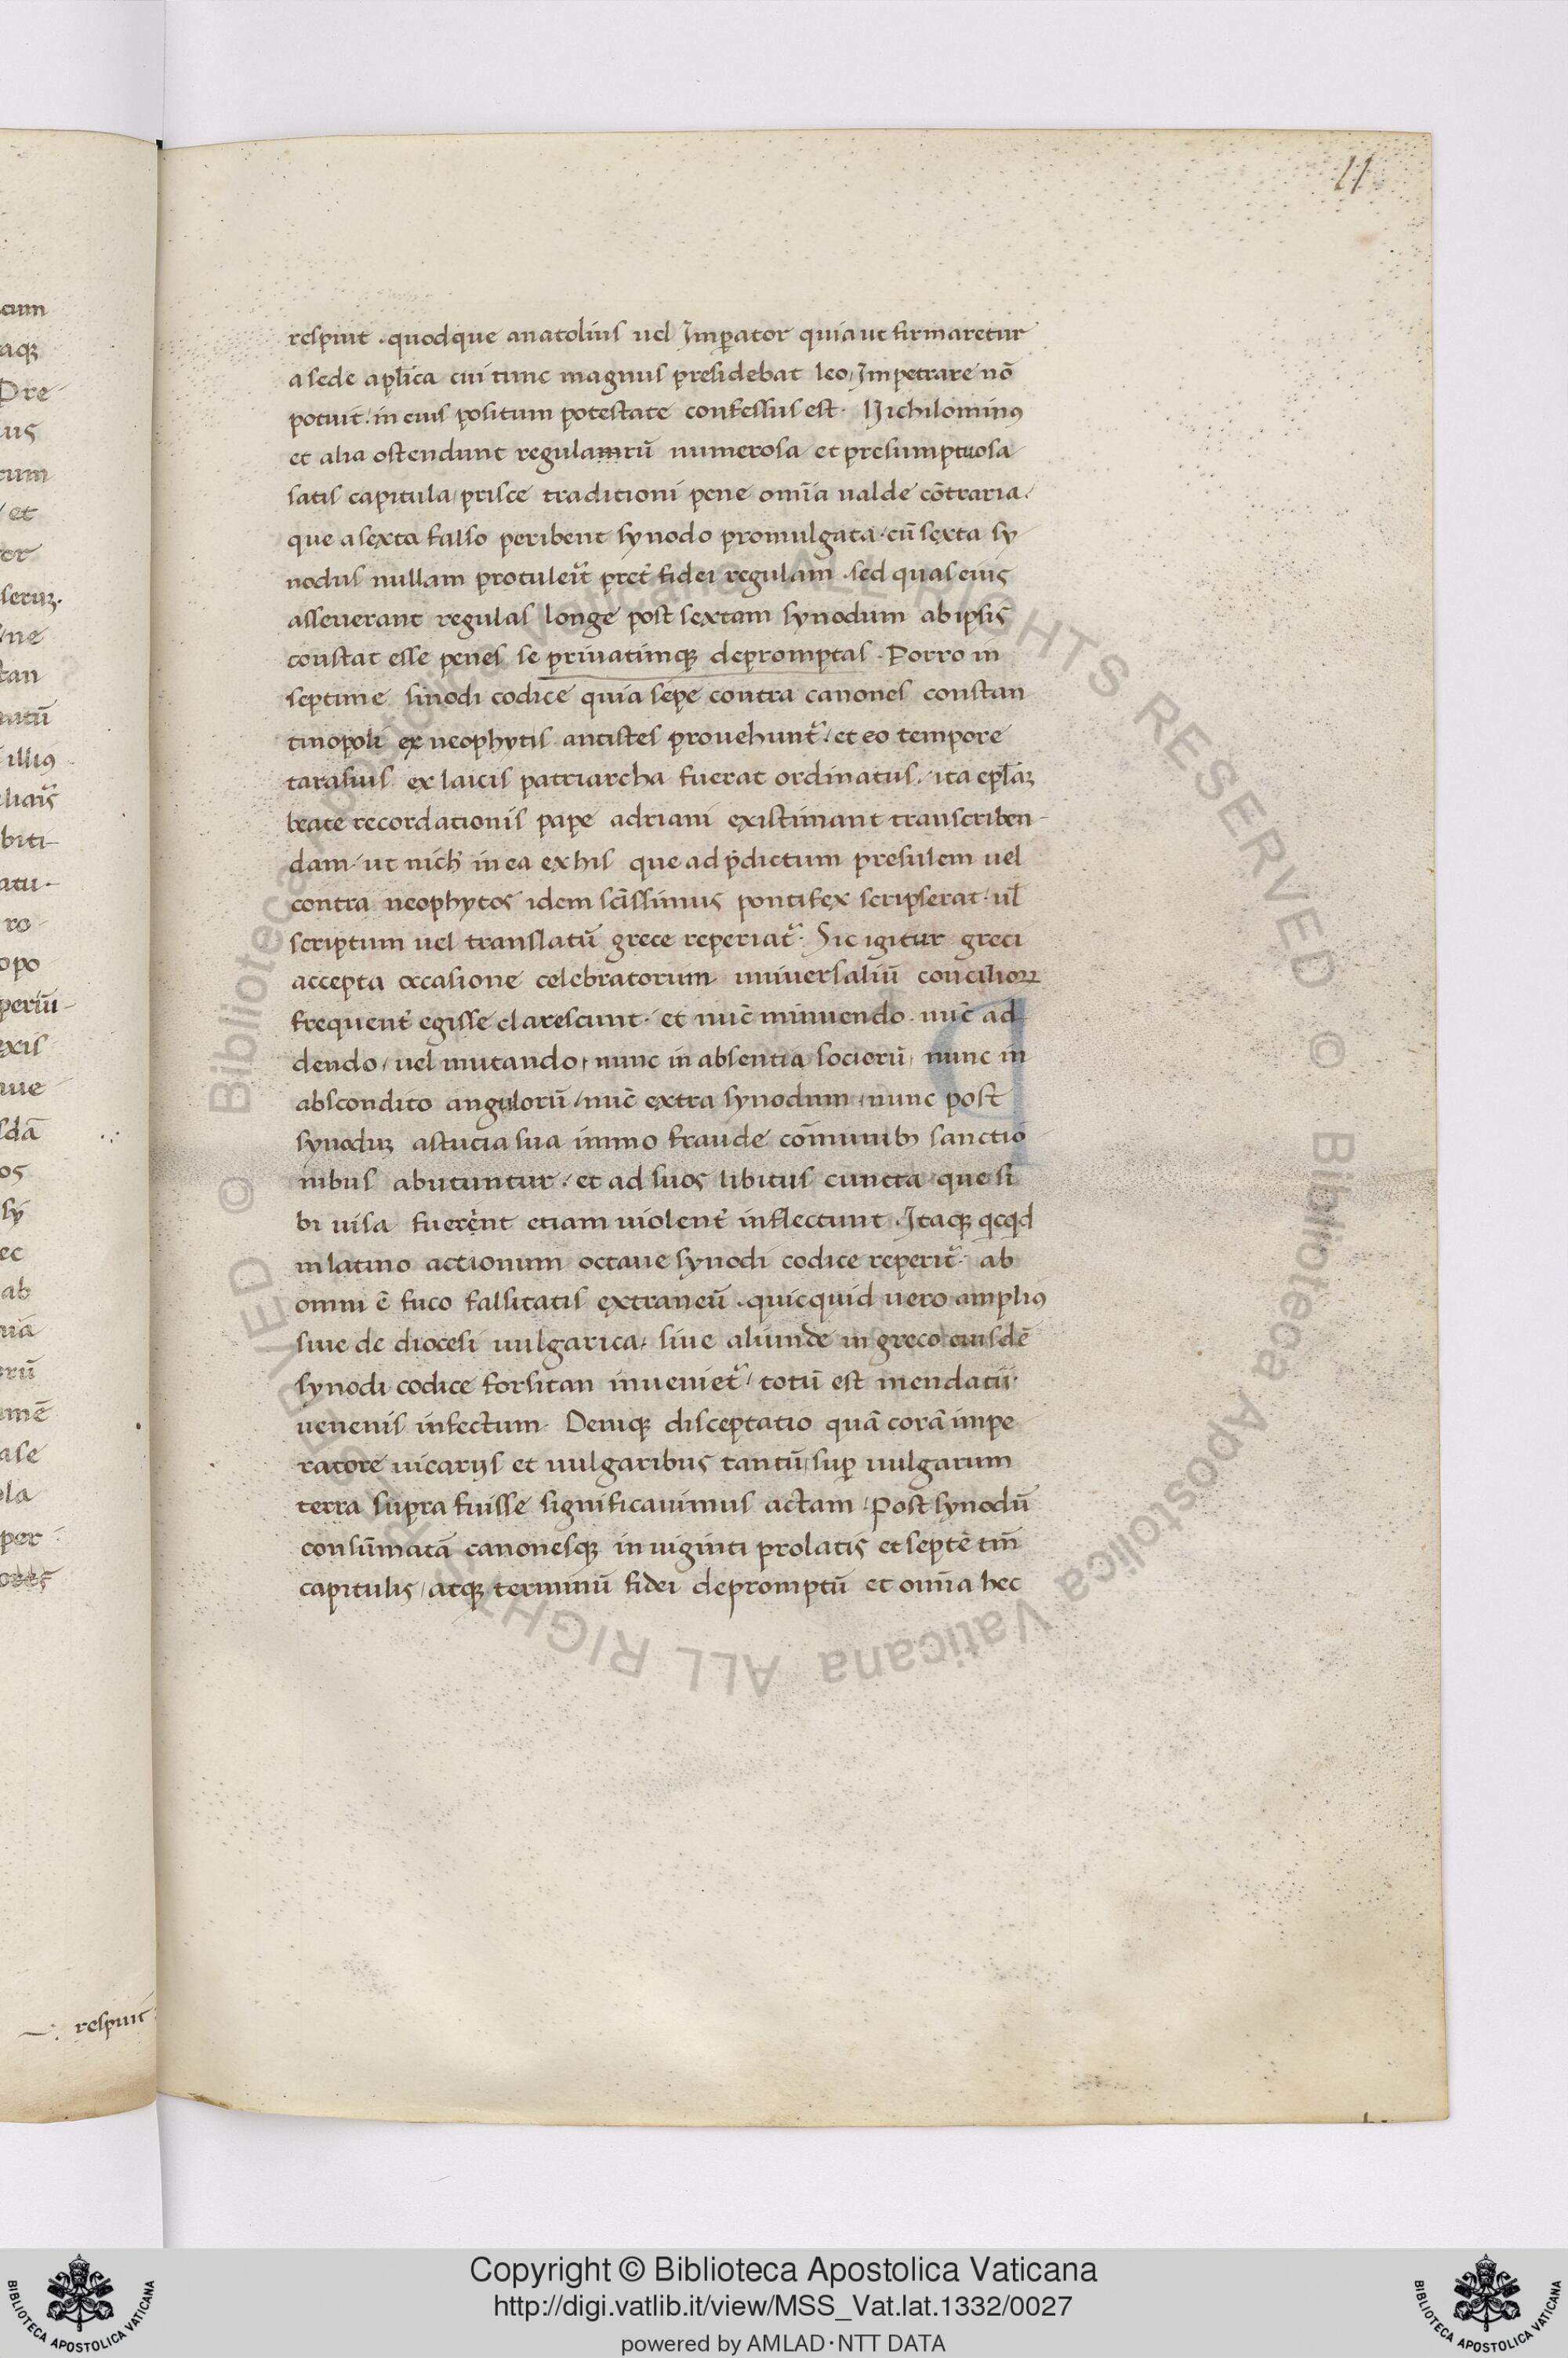 11
respuit . quodque anatolius uel Imperator quia ut firmaretur
a sede aplica cui tunc magnus presidebat leo / Impetrare nō
potuit . in eius positum potestate confessus est . Nichilominꝰ
et alia ostendunt regulamrū numerosa et presumptuosa
satis capitula / prisce traditioni pene om̄ia ualde cōtraria .
que a sexta falso peribent synodo promulgata . cū sexta sy
nodus nullam protulerit̃ pret̃ fidei regulam . sed quas eius
asseuerant regulas longe post sextam synodum ab ipsis
constat esse penes se priuatimqꝫ depromptas . Porro in
septime sinodi codice quia sepe contra canones constan
tinopoli ex neophytis antistes prouehunt᷑ . et eo tempore
tarasius ex laicis patriarcha fuerat ordinatus . ita epl̄aꝫ
beate recordationis pape adriani existimant transcriben
dam . ut nich̄ in ea ex his que ad p̄dictum presulem uel
contra neophytos idem sc̄issimus pontifex scripserat . ul̄
scriptum uel translatū grece reperiat᷑ . Sic igitur greci
accepta occasione celebratorum uniuersaliū concilioꝝ
frequent̃ egisse clarescunt . et nūc minuendo . nūc ad
dendo / uel mutando / nunc in absentia sociorū / nunc in
abscondito angulorū / nūc extra synodum / nunc post
synoduꝫ astucia sua immo fraude cōmunibꝫ sanctio
nibus abutuntur . et ad suos libitus cuncta que si
bi uisa fuerent etiam uiolent̃ inflectunt . Itaqꝫ qcqd
in latino actionum octaue synodi codice reperit᷑ . ab
omni ē fuco falsitatis extraneū . quicquid uero ampliꝰ
siue de diocesi uulgarica / siue aliunde in greco eiusdē
synodi codice forsitan inueniet᷑ / totū est mendatii
uenenis infectum . Deniqꝫ disceptatio quā corā impe
ratore uicarijs et uulgaribus tantū / sup̱ uulgarum
terra supra fuisse significauimus actam / Post synodū
consūmatā canonesqꝫ in uiginti prolatis et septē tm̄
capitulis / atqꝫ terminū fidei depromptū et om̄ia hec
respuit
Copyright © Biblioteca Apostolica Vaticana
http://digi.vatlib.it/view/MSS_Vat.lat.1332/0027
powered by AMLAD·NTT DATA
BIBLIOTECA APOSTOLICA VATICANA
BIBLIOTECA APOSTOLICA VATICANA
© Biblioteca Apostolica Vaticana ALL RIGHTS RESERVED © Biblioteca Apostolica Vaticana ALL RIGHTS RESERVED